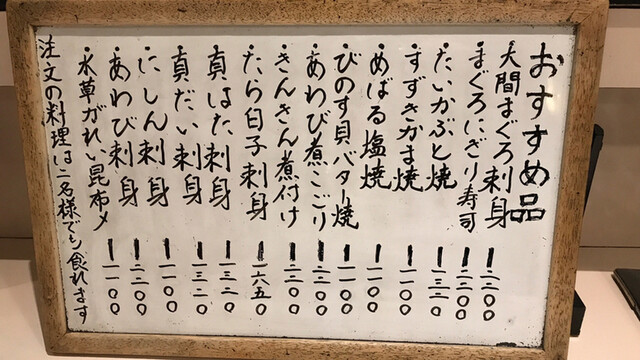 おすすめ品
・大間まぐろ刺身ー二二〇〇
・まぐろにぎり寿司ー二二〇〇
・たいかぶと焼ー一三二〇
・すずきかま焼ー一一〇〇
・めばる塩焼ー一一〇〇
・びのす貝バター焼ー一一〇〇
・あわび煮こごりー二二〇〇
・きんきん煮付けー二二〇〇
・たら白子刺身ー一六五〇
・真はた刺身ー一三二〇
・真だい刺身ー一三二〇
・にしん刺身ー一一〇〇
・あわび刺身ー二二〇〇
・水草がれい昆布〆ー一一〇〇
注文の料理は二名様でも食れます